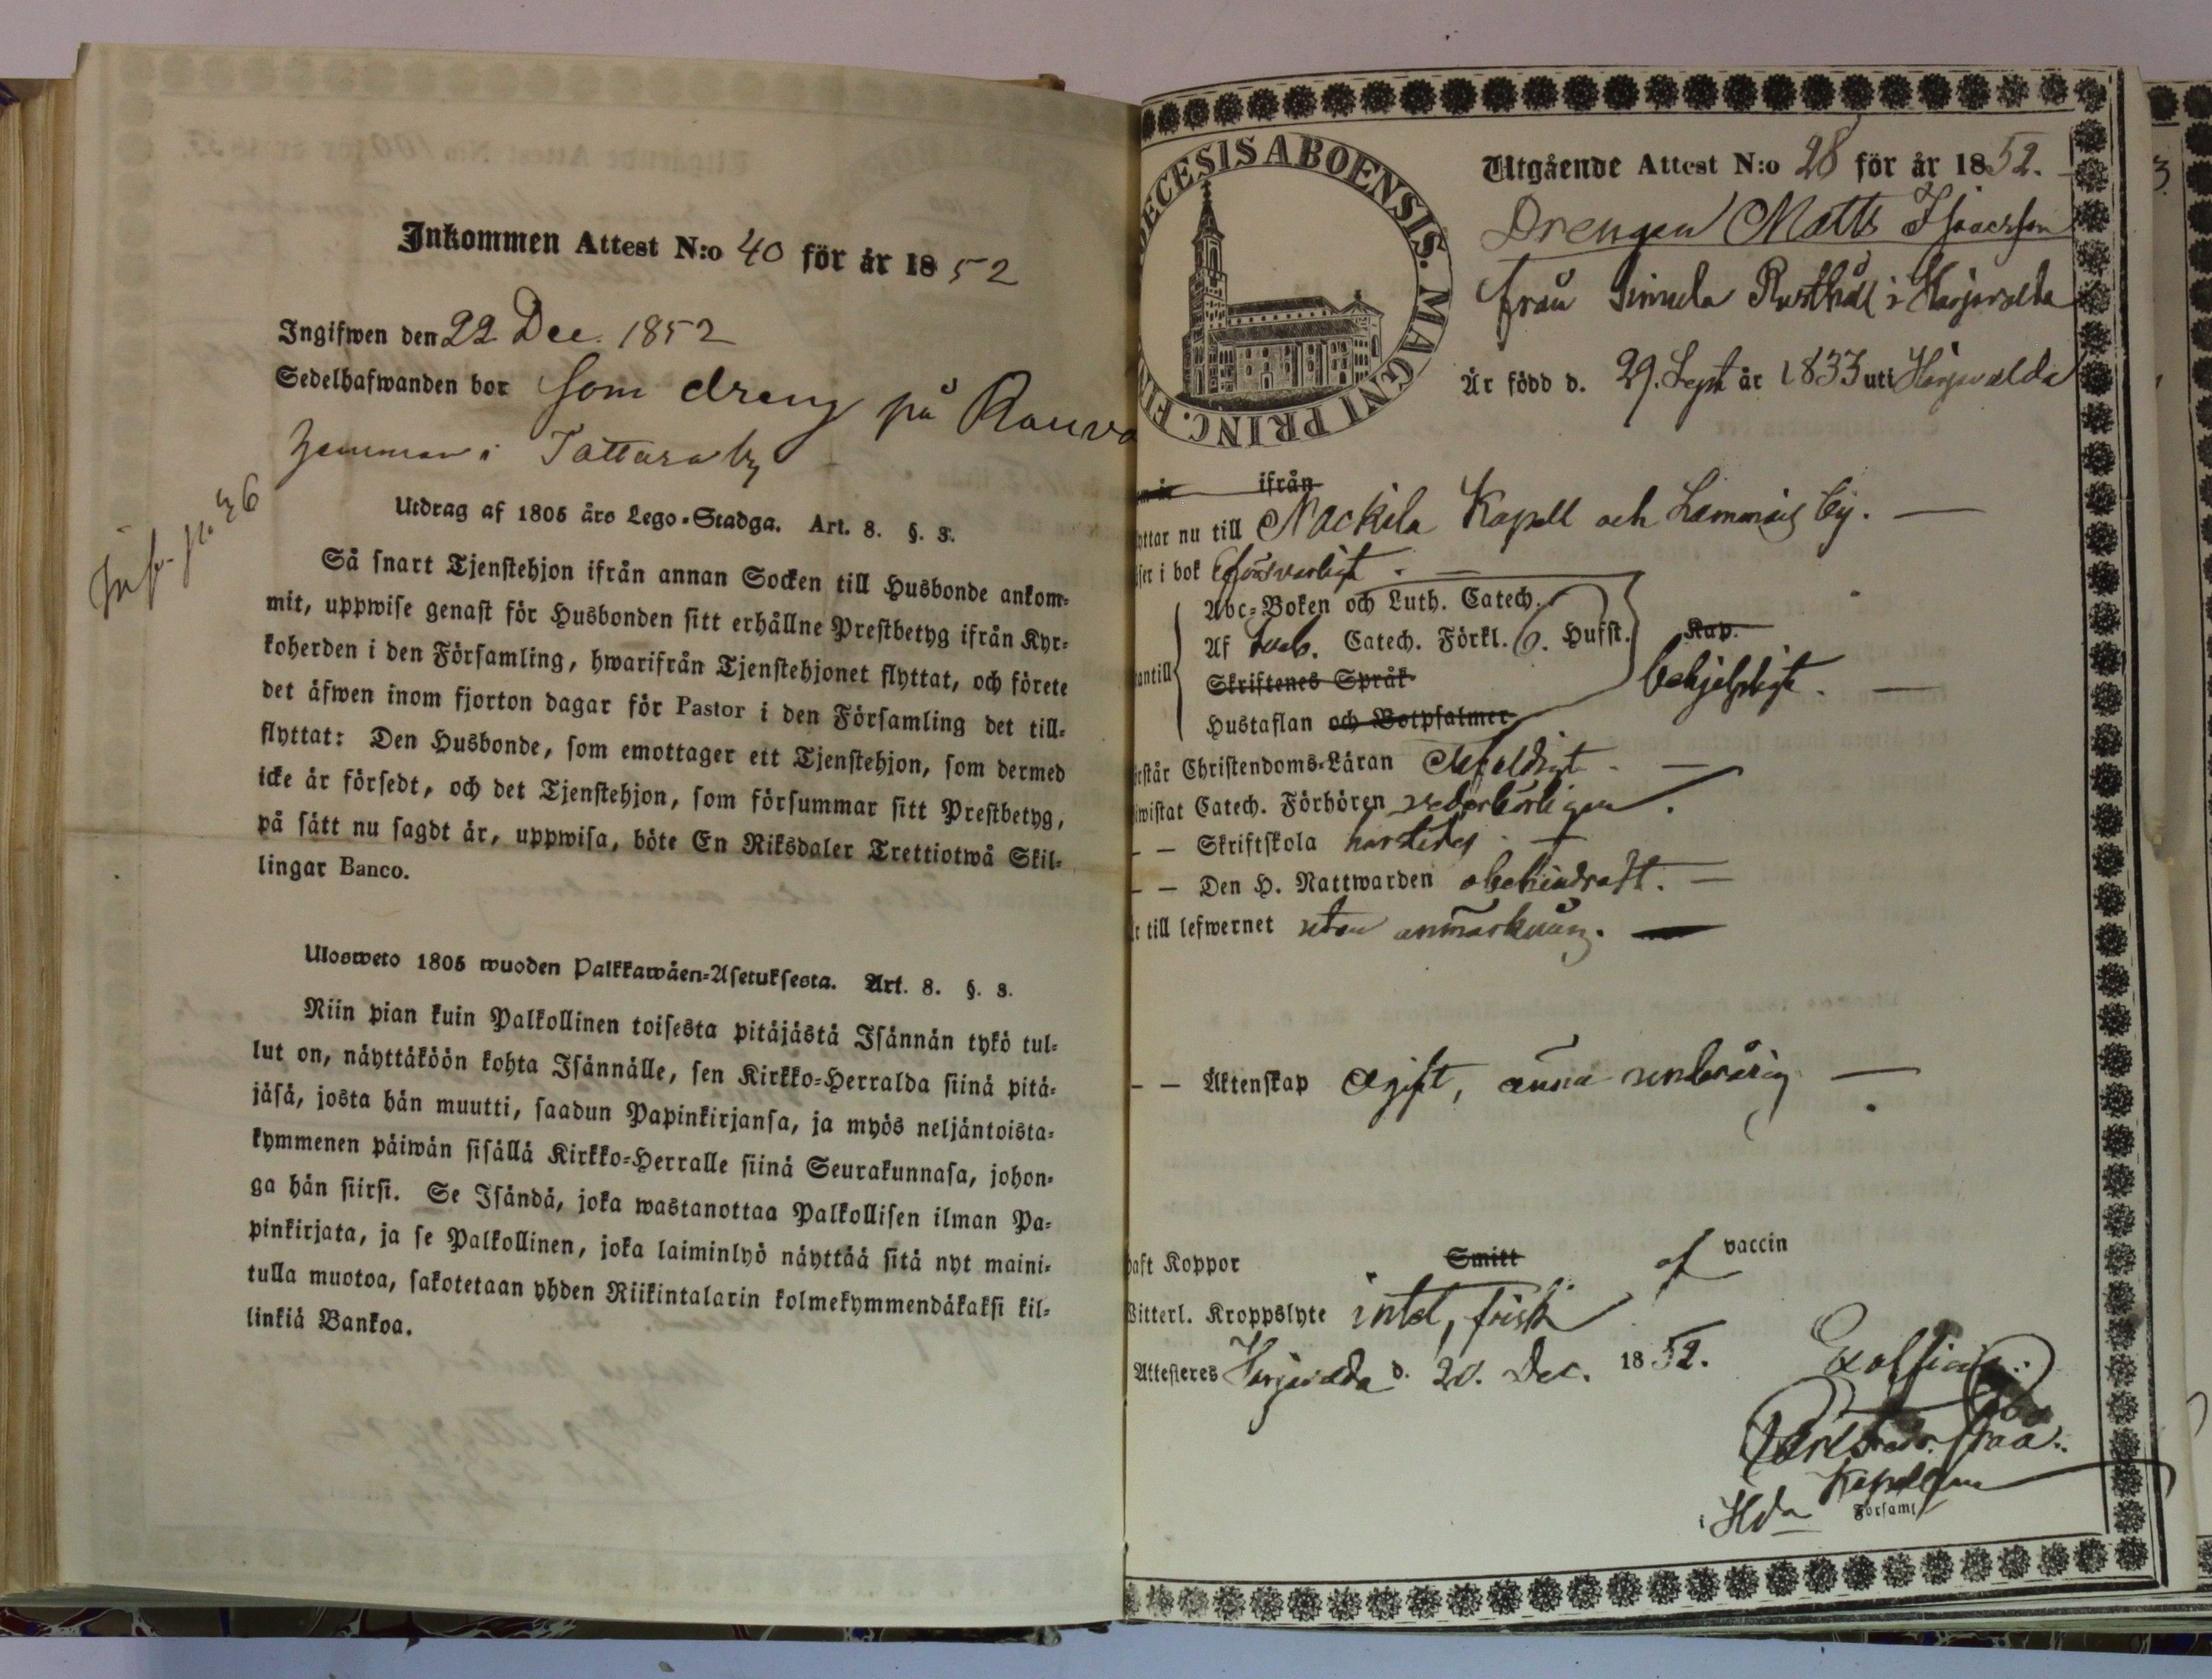 Inkommen Attest N:o 40 för år 1852
Ingifwen den 22 Dec. 1852
Sedelhafwanden bor som dreng på Rauva
hemman i Tattara by
Utdrag af 1805 års Lego-Stadga. Art. 8. §. 3.
Så snart Tjenstehjon ifrån annan Socken till Husbonde ankom-
mit, uppwise genast för Husbonden sitt erhållne Prestbetyg ifrån Kyr-
koherden i den Församling, hwarifrån Tjenstehjonet flyttat, och förete
det äfwen inom fjorton dagar för Pastor i den Församling det till-
flyttat: Den Husbonde, som emottager ett Tjenstehjon, som dermed
icke är försedt, och det Tjenstehjon, som försummar sitt Prestbetyg,
på sätt nu sagdt är, uppwisa, böte En Riksdaler Trettiotwå Skil-
lingar Banco.
Ulosweto 1805 wuoden Palkkawäen-Asetuksesta. Art. 8. §. 3.
Niin pian kuin Palkollinen toisesta pitäjästä Isännän tykö tul-
lut on, näyttäköön kohta Isännälle, sen Kirkko-Herralda siinä pitä-
jäsä, josta hän muutti, saadun Papinkirjansa, ja myös neljäntoista-
kymmenen päiwän sisällä Kirkko-Herralle siinä Seurakunnasa, johon-
ga hän siirsi. Se Isändä, joka wastanottaa Palkollisen ilman Pa-
pinkirjata, ja se Palkollinen, joka laiminlyö näyttää sitä nyt maini-
tulla muotoa, sakotetaan yhden Riikintalarin kolmekymmendäkaksi kil-
linkiä Bankoa.
ECESIS ABOENSIS. MAGNI PRINC. FIN
Utgående Attest N:o 28 för år 1852.
Drengen Matts Isaacsson
från Simula Rusthåll i Harjavalda
Är född d. 29. Sept år 1833 uti Harjavalda
ifrån
yttar nu till Nackila Kapell och Lammais by.
ser i bok försvarligt.
Abc-Boken och Luth. Catech.
Af Catech. Förkl. o. Hufst. Kap.
antill
Skriftenes Språk
behjelpligt.
Hustaflan och Botpsalmer
rstår Christendoms-Läran enfaldigt
iwistat Catech. Förhören vederbörligen.
– – Skriftskola
– – Den H. Nattwarden obehindradt.
r till lefwernet utan anmärkning.
– – Äktenskap ogift, ännu underårig
haft Koppor Smitt af vaccin
Witterl. Kroppslyte intet, frisk
Attesteres Harjavalda d. 20. Dec. 1852.
Kapellan
i Hda Församl